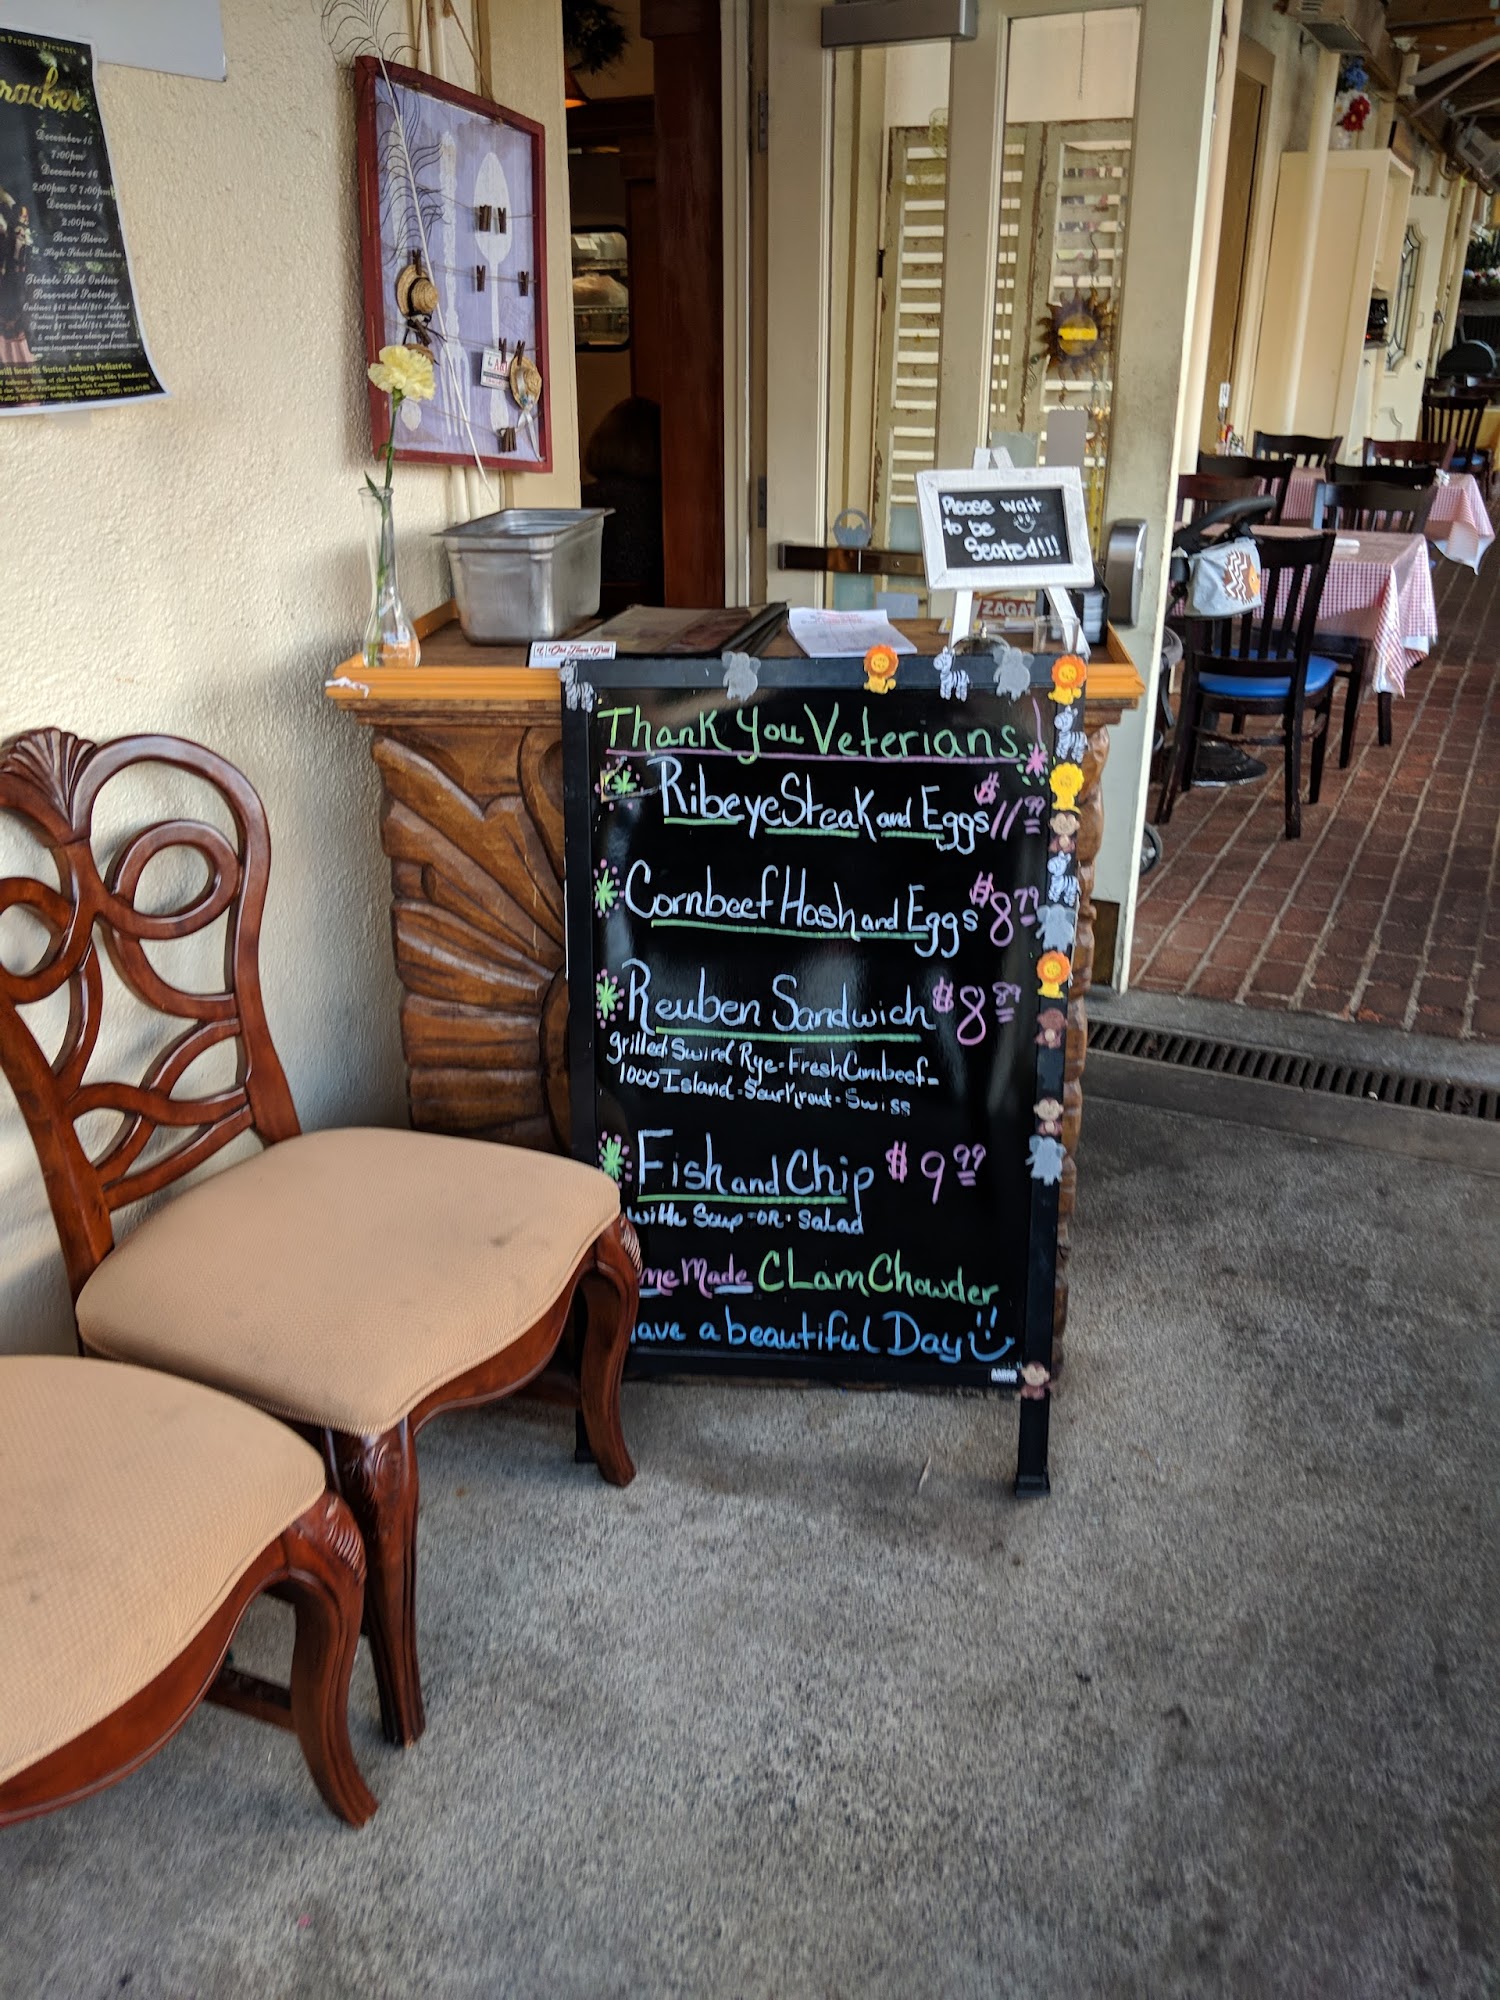 n Proudly Presents
racker
December 15
7:00pm
December 16
2:00pm & 7:00pm
December 17
2:00pm
Bear River
High School Theatre
Tickets Sold Online
Reserved Seating
5 and under always free!
will benefit Sutter Auburn Pediatrics
Please wait
to be
Seated!!!
ZAGAT
Old Town Grill
Thank You Veterians
Ribeye Steak and Eggs $11.99
Cornbeef Hash and Eggs $8.79
Reuben Sandwich $8.89
grilled Swirel Rye-Fresh Cornbeef-
1000 Island-Sourkrout-Swiss
Fish and Chip $9.99
with Soup-OR-Salad
me Made CLam Chowder
ave a beautiful Day